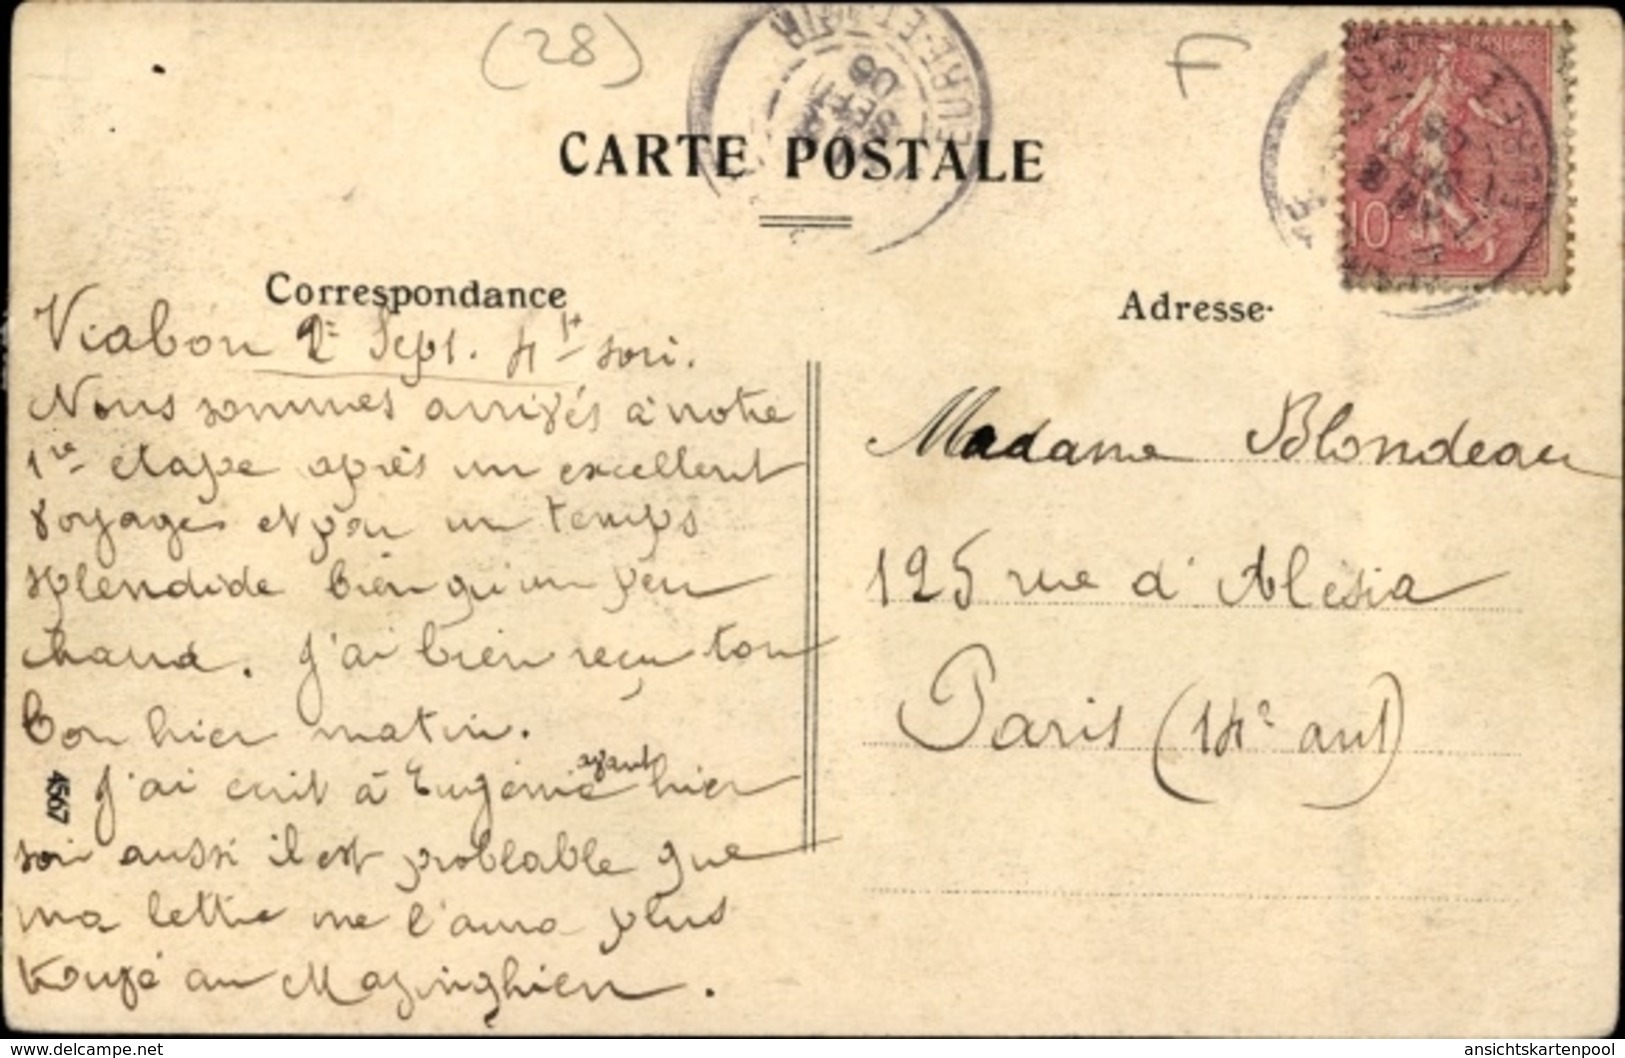 (28)
F
EURE-ET-LOIR
SEPT
05
EURE-ET
10
CARTE POSTALE
Correspondance
Adresse
Viabon 2 Sept. 4h soir.
Nous sommes arrivés à notre
1re étape après un excellent
voyage et par un temps
splendide bien qu'un peu
chaud. J'ai bien reçu ton
bon hier matin.
J'ai écrit à Eugénie avant hier
soir aussi il est problable que
ma lettre ne l'aura plus
trouvé au Mazinghien.
4567
Madame Blondeau
125 rue d'Alésia
Paris (14e arrt)
https://www.delcampe.net
ansichtskartenpool